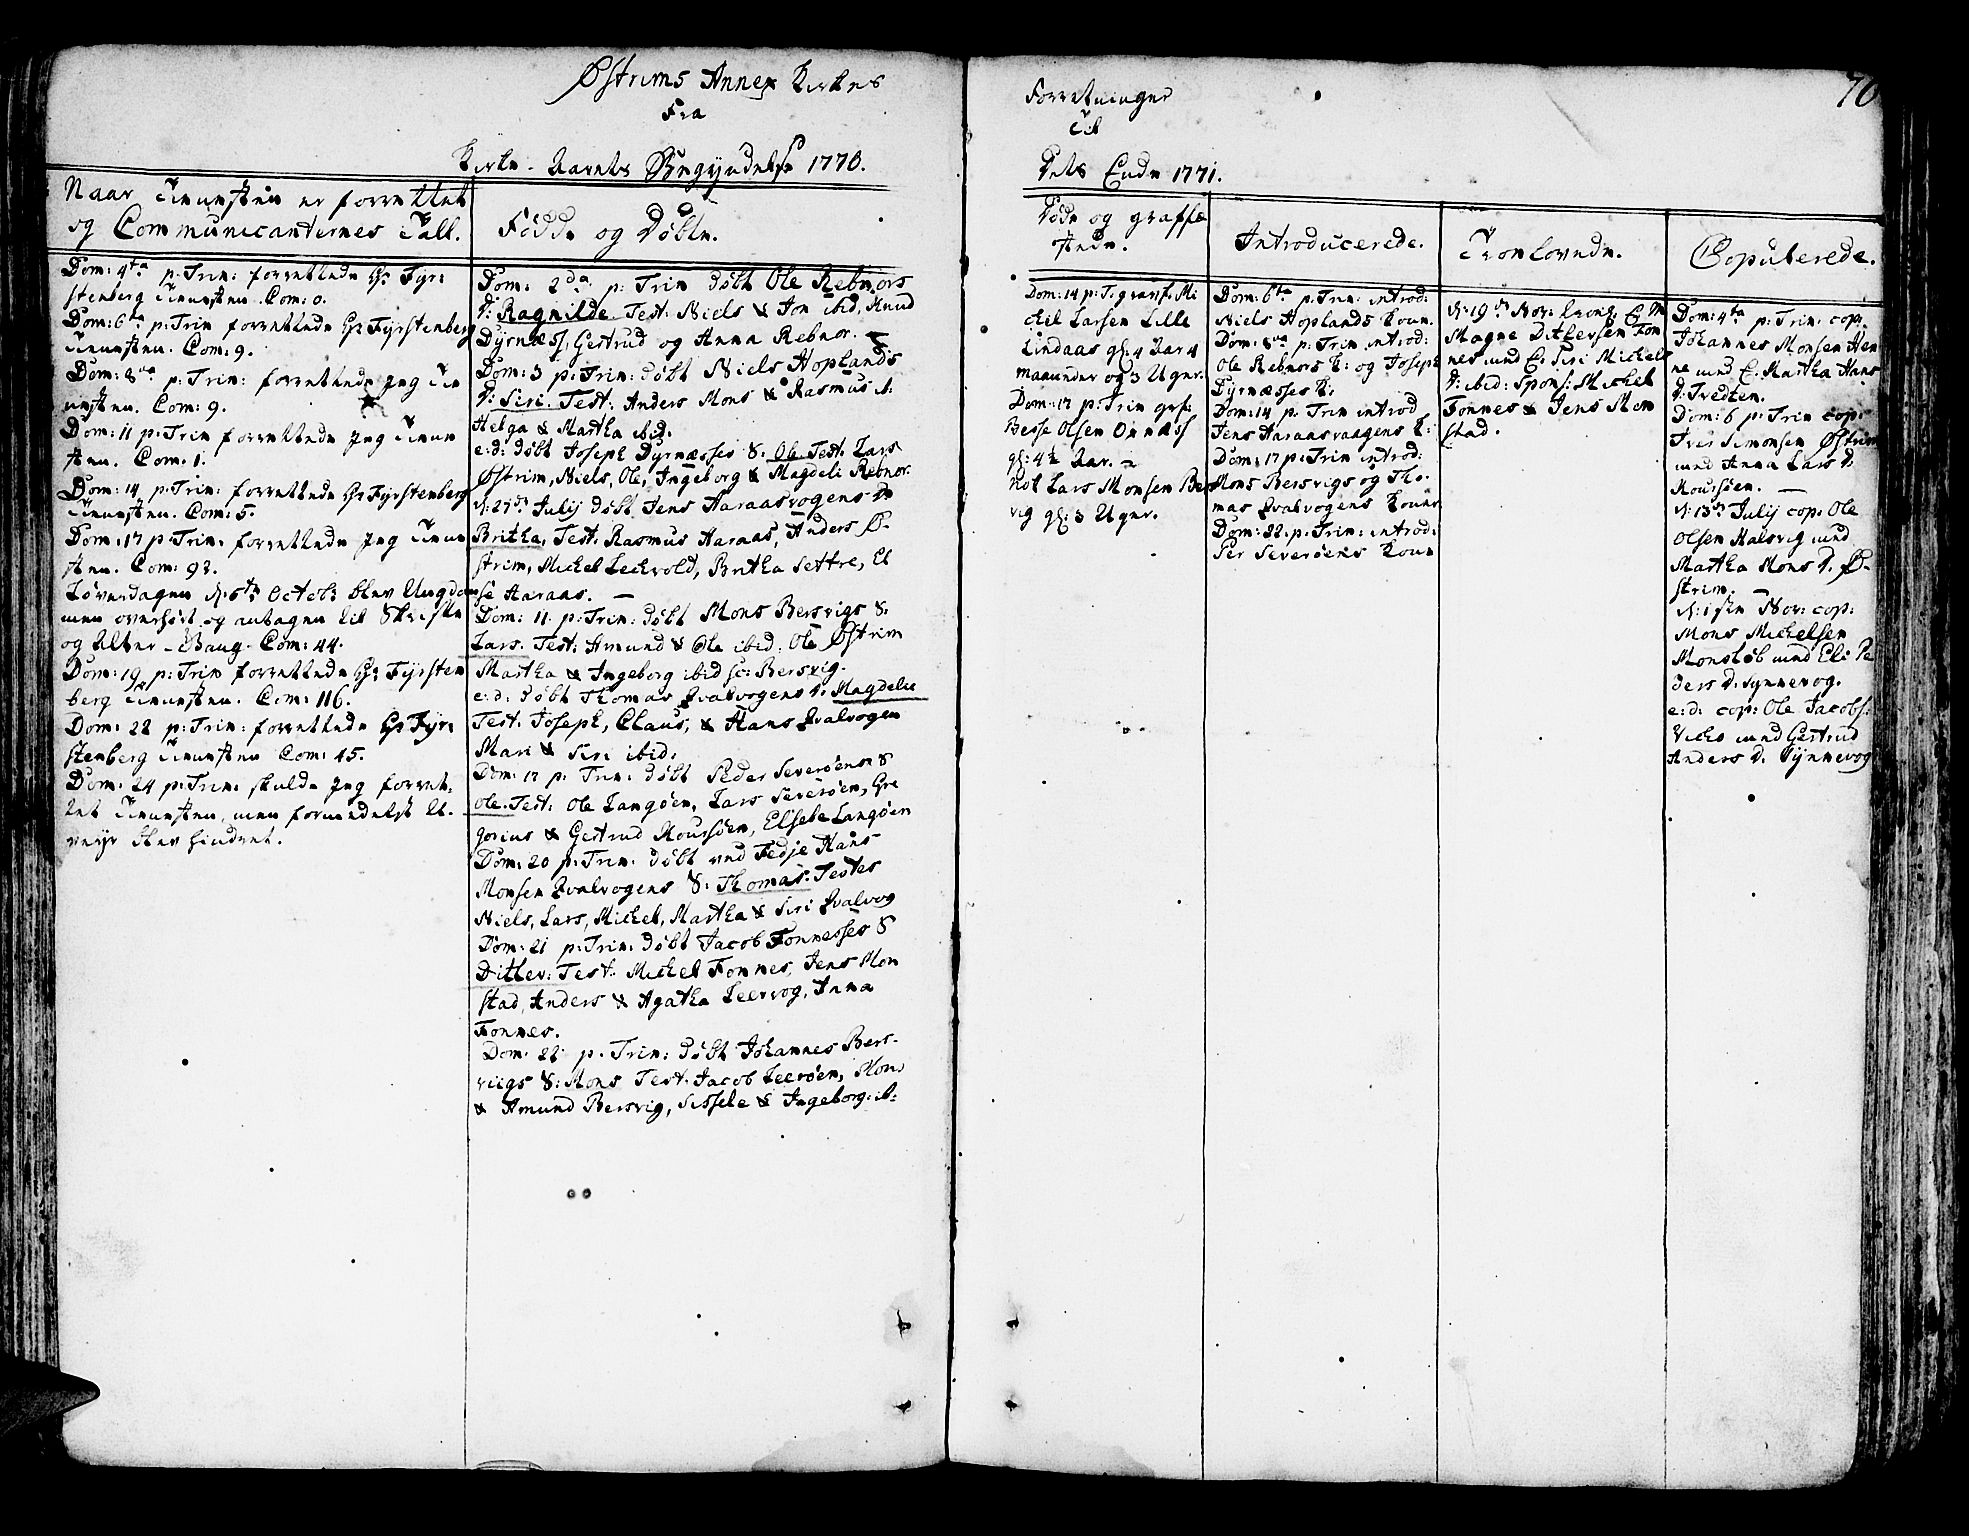 Østrims Annex Kirkes
Fra
Kirke-Aarets Begyndelse 1770.
Naar Tienesten er forrettet
og Communicanternes Tall.
Dom: 4ta p: Trin: forrettede Hr Fyr:
stenberg Tienesten. Com: 0.
Dom: 6ta p: Trin forrettede Hr Fyrstenberg
Tienesten. Com: 9.
Dom: 8va p: Trin: forrettede Jeg Tie
nesten. Com: 9.
Dom: 11 p: Trin forrettede Jeg Tiene
sten. Com: 1.
Dom: 14 p: Trin: forrettede Hr Fyrstenberg
Tienesten. Com: 5.
Dom: 17 p: Trin: forrettede Jeg Tiene
sten. Com: 92.
Løverdagen d: 5te Octob: blev Ungdom
men overhørt og antagen til Skrifte
og Alter-Gang. Com: 44.
Dom: 19 p: Trin forrettede Hr Fyrsten
berg Tienesten. Com: 116.
Dom: 22 p: Trin: forrettede Hr Fyr:
stenberg Tienesten Com: 45.
Dom: 24 p: Trin: skulde Jeg forret:
tet Tienesten, men formedelst U:
veyr blev hindret.
Fødde og Døbte.
Dom: 2da p: Trin døbt Ole Rebnors
D: Ragnilde Test: Niels & Jon ibid, Knud
Dyrnæss, Gertrud og Anna Rebnor.
Dom: 3 p: Trin: døbt Niels Hoplands
D: Siri. Test: Anders Mons & Rasmus &
Helga & Martha ibid:
e: d: døbt Joseph Dyrnæsses S: Ole Test. Lars
Østrim, Niels, Ole, Ingeborg & Magdeli Rebnor.
d: 27de Julij døbt Jens Haraasvogens D
Britha, Test. Rasmus Haraas, Anders Ø-
strim, Michel Leckvold, Britha Settre, El
se Haraas. —
Dom: 11 p: Trin: døbt Mons Bersvigs S:
Lars. Test: Amund & Ole ibid: Ole Østrim
Martha & Ingeborg ibid sc: Bersvig.
e: d: døbt Thomas Qvalvogens D: Magdele
Test: Joseph, Claus, & Hans Qvalvogen
Mari & Siri ibid:
Dom: 17 p: Trin: døbt Peder Severøens S
Ole. Test: Ole Langøen, Lars Severøen, Gre
gorius & Gertrud Roussøen, Elsebe Langøen
Dom: 20 p: Trin: døbt ved Fedje Hans
Monsen Qvalvogens S: Thomas. Testes
Niels, Lars, Michel, Martha & Siri Qvalvog
Dom: 21 p: Trin: døbt Jacob Fonnesses S
Ditlev: Test. Michel Fonnes, Jens Mon
stad, Anders & Agatha Leervog, Anna
Fonnes.
Dom: 22 p: Trin: døbt Johannes Bers-
viigs S: Mons Test. Jacob Leerøen, Mons
& Amund Bersvig, Sissele & Ingeborg: ib:
Forretninger
Til
Dets Ende 1771.
70
Døde og graffæ
stede.
Dom: 14 p: T. græsf: Mi
chel Larsen Lille
Lindaas gl: 4 Aar 4
maaneder og 3 Uger.
Dom: 17 p: Trin grf:
Besse Olsen Onnæss
gl: 4½ Aar. —
Not Lars Monsen Bers
vig gl: 3 Uger.
Introducerede.
Dom: 6ta p: Trin: introd:
Niels Hoplands Kone.
Dom: 8va p: Trin introd:
Ole Rebnors K: og Joseph
Dyrnæsses K:
Dom: 14 p: Trin introd
Jens Haraasvaagens K:
Dom: 17 p: Trin introd:
Mons Bersvigs og Tho-
mas Qvalvogens Koner
Dom: 22. p: Trin: introd:
Per Severøens Kone
Troelovede.
d: 19de Nov: troel: E. M
Magne Ditlevsen Fon
nes med E: Siri Michels
D: ibid: Spons: Michel
Fonnes & Jens Mon
stad.
Copulerede.
Dom: 4ta p: Trin: cop:
Johannes Monsen Hen
ne med E. Martha Hans
D: Tvedten.
Dom: 6 p: Trin cop:
Iver Simonsen Østrim
med Anna Lars D:
Roussøen. —
d: 13de Julij cop: Ole
Olsen Halsvig med
Martha Mons D. Ø-
strim. —
d: 1ste Nov: cop:
Mons Michelsen
Monsløb med Eli Pe
ders D: Synnevog.
e: d: cop: Ole Jacobs:
med Gertrud
Anders D. Synnevog